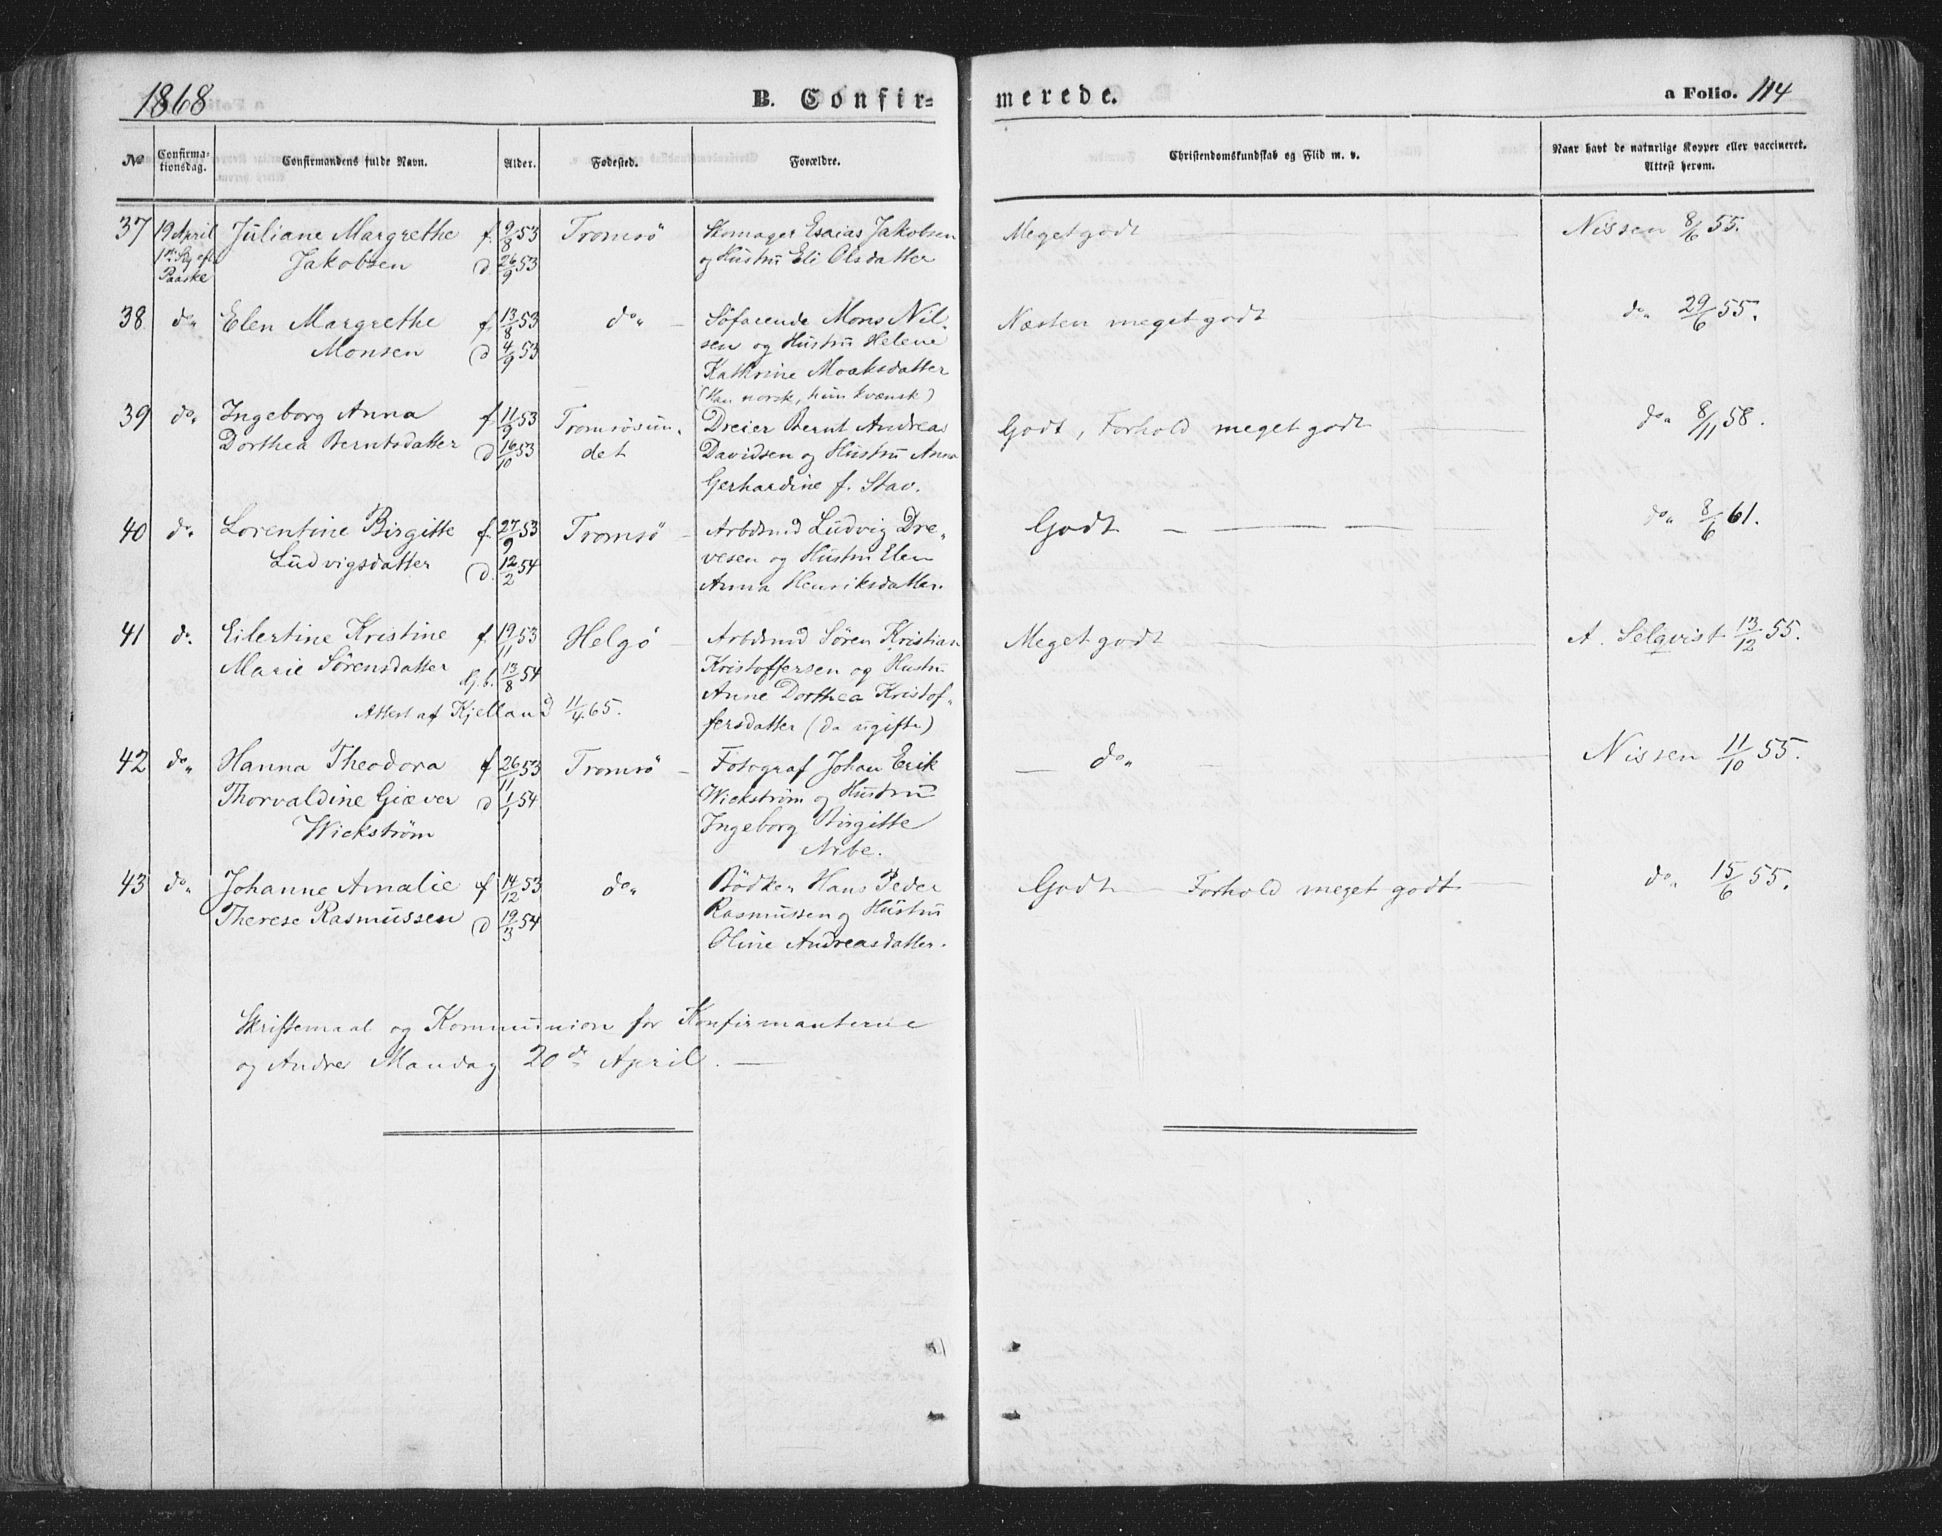 1868 B. Confir= merede. a Folio. 114
No Confirma-tionsdag. Confirmandens fulde Navn. Alder. Fødested. Forældre. Christendomskundskab og Flid m. v. Naar havt de naturlige Kopper eller vaccineret. Attest herom.
37 19 April Juliane Margrethe f. 9/8 53 Tromsö Skomager Esaias Jakobsen Meget godt Nissen 8/6 55.
1ste Sg eft. Jakobsen d 26/9 53 og Hustru Eli Olsdatter
Paaske
38 do„ Elen Margrethe f. 13/8 53 do„ Söfarende Mons Nil- Næsten meget godt do„ 29/6 55.
Monsen d 4/9 53 sen og Hustru Helene
Kathrine Moaksdatter
(Han norsk, hun kvænsk)
39 do„ Ingeborg Anna f 11/9 53 Tromsösun- Dreier Bernt Andreas Godt, Forhold meget godt do„ 8/11 58.
Dorthea Berntsdatter d 16/10 53 det Davidsen og Hustru Anna
Gerhardine f. Stav.
40 do. Lorentine Birgitte f. 27/9 53 Tromsö Arbdsmd Ludvig Dre- Godt do„ 8/6 61.
Ludvigsdatter d. 12/2 54 vesen og Hustru Elen
Anna Henriksdatter.
41 do. Eilertine Kristine f. 19/11 53 Helgö Arbdsmd Sören Kristian Meget godt A. Selqvist 13/12 55.
Marie Sörensdatter 13/8 54 Kristoffersen og Hustru
Anne Dorthea Kristof-
Attest af Kjelland 11/4 65. fersdatter (da ugifte)
42 do„ Hanna Theodora f 26/11 53 Tromsö Fotograf Johan Erik do„ Nissen 11/10 55.
Thorvaldine Giæver d 1/1 54 Wickström og Hustru
Wickström Ingeborg Birgitte
Nibe.
43 do„ Johanne Amalie f 14/12 53 do„ Bödker Hans Peder Godt Forhold meget godt do„ 15/6 55.
Therese Rasmussen d 19/3 54 Rasmussen og Hustru
Oline Andreasdatter.
Skriftemaal og Kommunion for Konfirmanterne
og Andre Mandag 20de April.